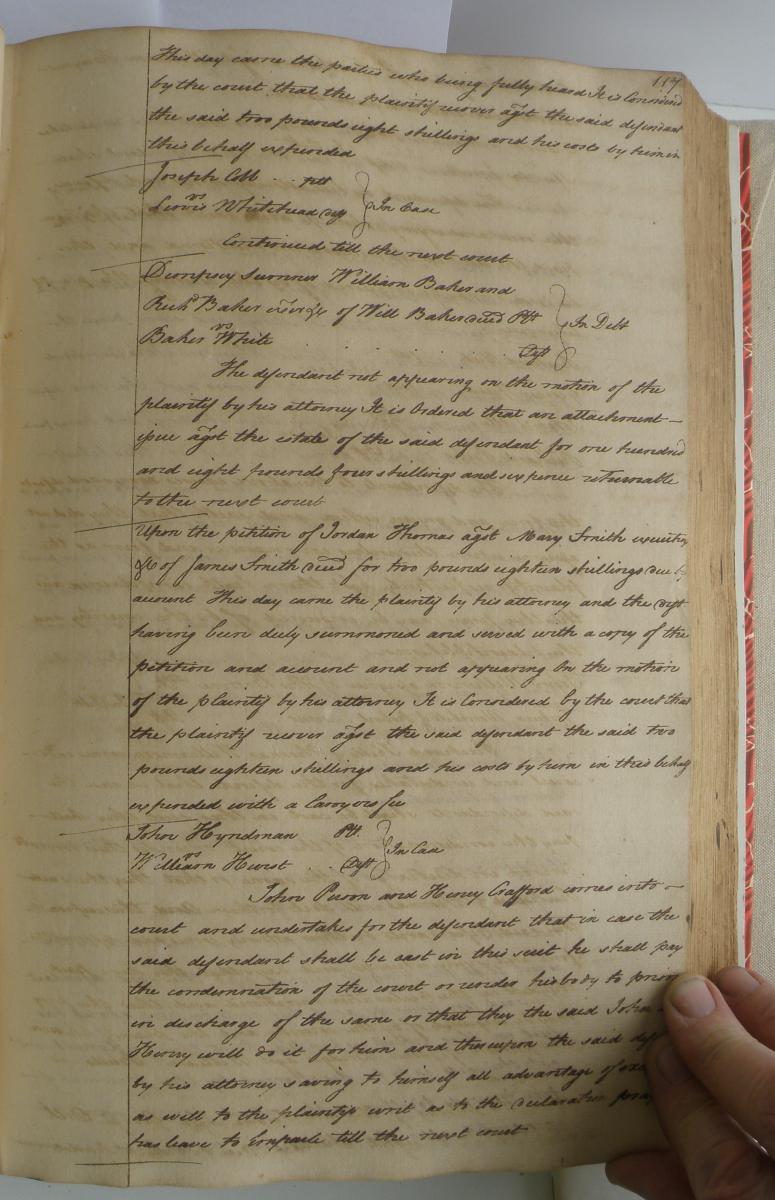 117
This day came the parties who being fully heard It is Considered
by the court that the plaintif recover agst the said defendant
the said two pounds eight shillings and his costs by him in
this behalf expended
Joseph Cobb . . plt
vs In Case
Lewis Whitehead deft
Continued till the next court
Dempsey Sumner William Baker and
Richd Baker exors &c of Will Baker decd Plt
vs In Debt
Baker White . . . . Deft
The defendant not appearing on the motion of the
plaintif by his attorney It is Ordered that an attachment
issue agst the estate of the said defendant for one hundred
and eight pounds four shillings and six pence returnable
to the next court
Upon the petition of Jordan Thomas agst Mary Smith
&c of James Smith decd for two pounds eighteen shillings due by
account This day came the plaintif by his attorney and the deft
having been duly summoned and served with a copy of the
petition and account and not appearing On the motion
of the plaintif by his attorney It is Considered by the court that
the plaintif recover agst the said defendant the said two
pounds eighteen shillings and his costs by him in this behalf
expended with a lawyers fee
John Hyndman Plt.
vs In Case
William Hurst . . Deft
John and Henry Crafford comes into
court and undertakes for the defendant that in case the
said defendant shall be cast in this suit he shall pay
the condemnation of the court or render his body to prison
in discharge of the same or that they the said John
Henry will do it for him and thereupon the said
by his attorney saving to himself all advantage of
as well to the plaintifs writ as to the declaration
has leave to Emparle till the next court